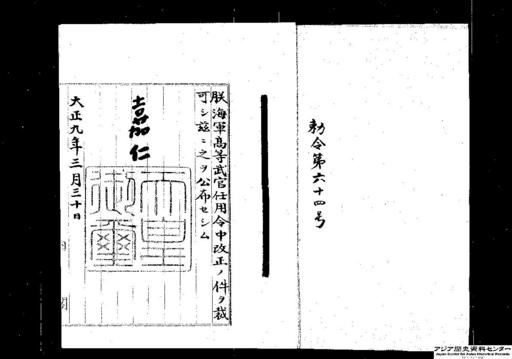 勅令第六十四号
朕海軍高等武官任用令中改正ノ件ヲ裁
可シ茲ニ之ヲ公布セシム
嘉仁
天皇
御璽
大正九年三月三十日
アジア歴史資料センター
Japan Center for Asian Historical Records